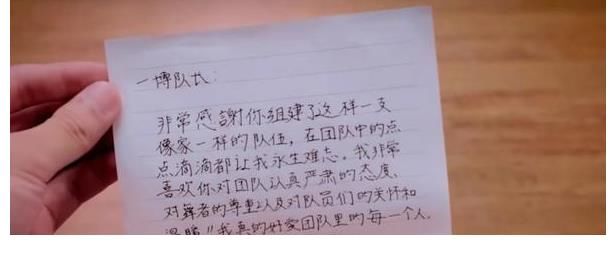 一博队长:
非常感謝你组建了这样一支
像家一样的队伍，在团队中的点
点滴滴都让我永生难忘。我非常
喜欢你对团队认真严肃的态度、
对舞者的尊重以及对队员们的关怀和
温暖!!我真的好爱团队里的每一个人.